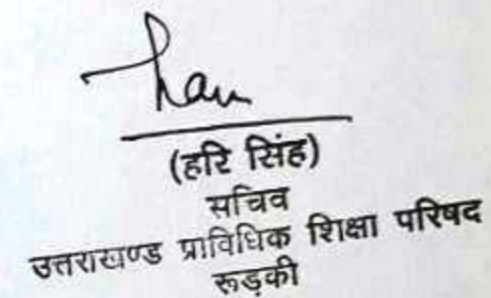 (हरि सिंह)
सचिव
उत्तराखण्ड प्राविधिक शिक्षा परिषद
रूड़की